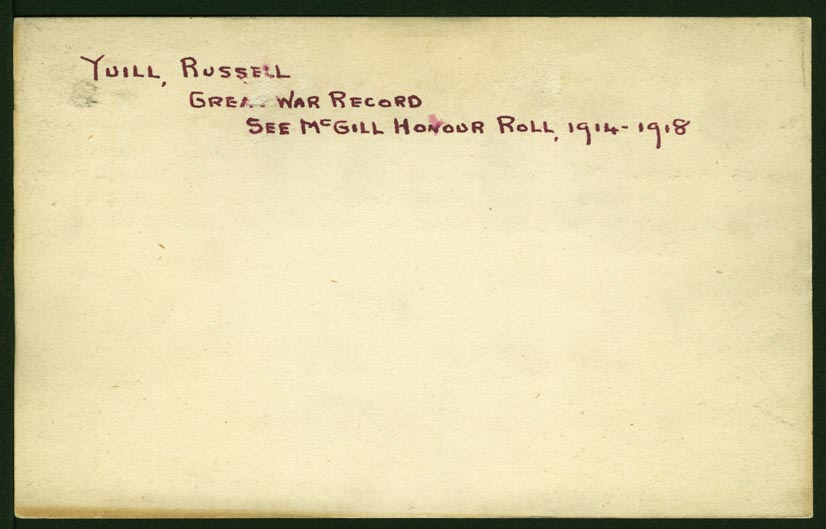 Yuill, Russell
Great War Record
See McGill Honour Roll, 1914-1918